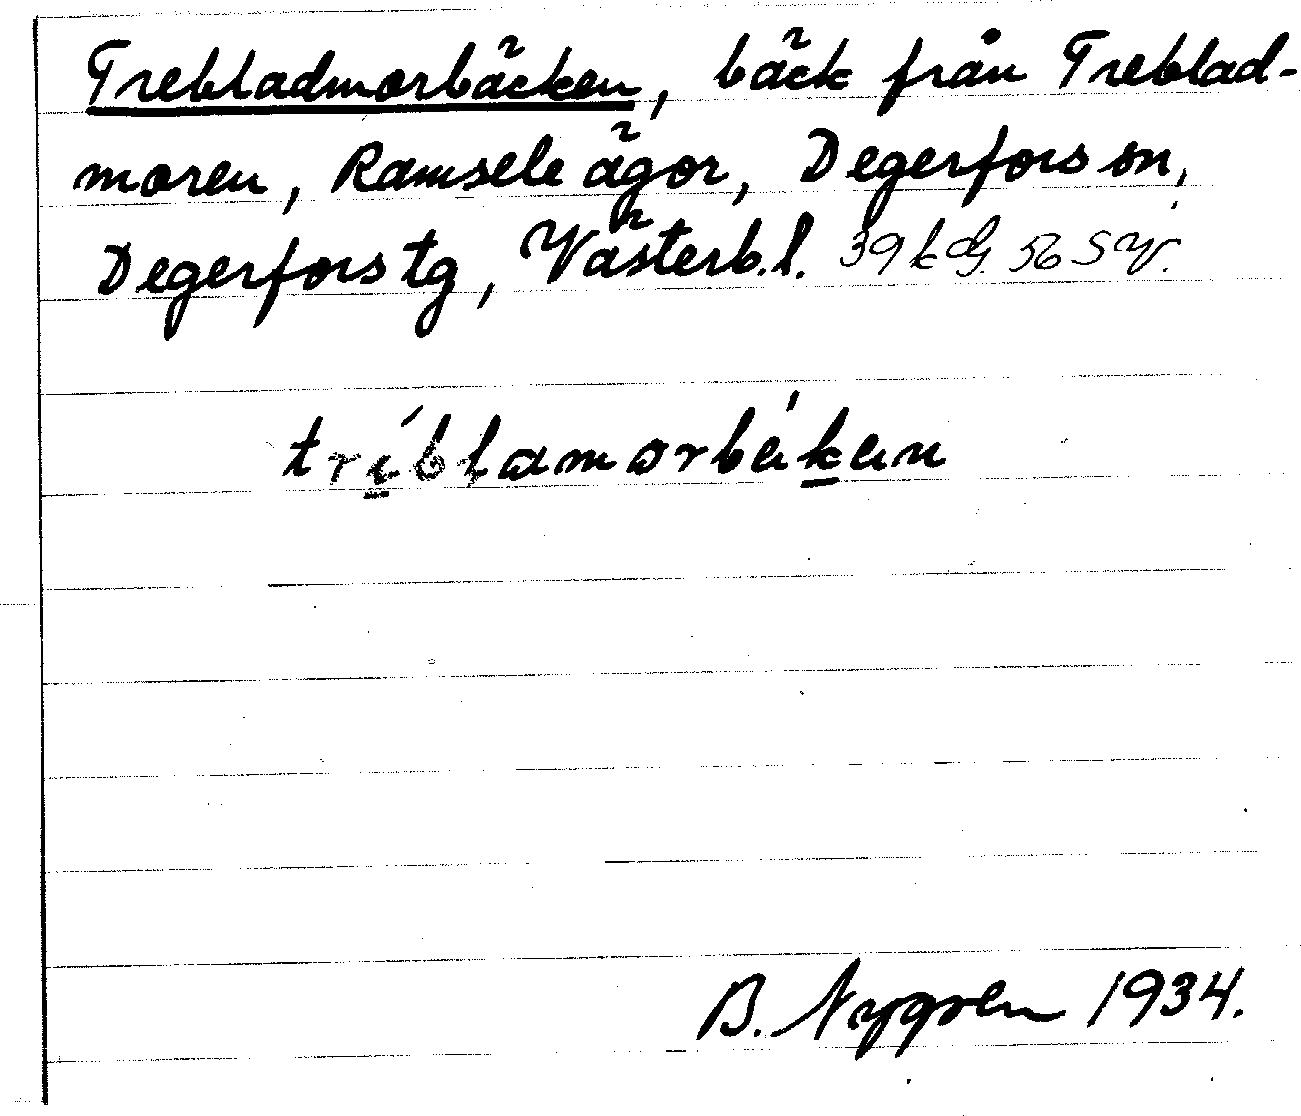 Trebladmorbäcken, bäck från Treblad-
moren, Ramsele ägor, Degerfors sn,
Degerfors tg, Västerb. l. 39 k dg. 56 S V.
tríblamorbékän
B. Nygren 1934.